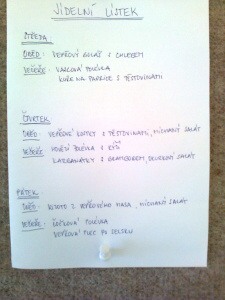 JÍDELNÍ LÍSTEK
STŘEDA
OBĚD: VEPŘOVÝ GULÁŠ S CHLEBEM
VEČEŘE: VLOČKOVÁ POLÉVKA
KUŘE NA PAPRICE S TĚSTOVINAMI
ČTVRTEK
OBĚD: VEPŘOVÉ KOSTKY S TĚSTOVINAMI, MÍCHANÝ SALÁT
VEČEŘE: HOVĚZÍ POLÉVKA S RÝŽÍ
KARBANÁTKY S BRAMBOREM, OKURKOVÝ SALÁT
PÁTEK
OBĚD: RIZOTO Z VEPŘOVÉHO MASA, MÍCHANÝ SALÁT
VEČEŘE: ČOČKOVÁ POLÉVKA
VEPŘOVÁ PLEC PO SELSKU